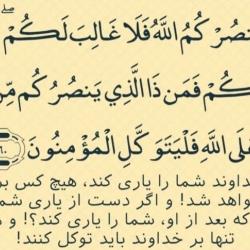 نصُرْكُمُ اللَّهُ فَلَا غَالِبَ لَكُمْ ۖ
كُمْ فَمَن ذَا الَّذِي يَنصُرُكُم مِّن
عَلَى اللَّهِ فَلْيَتَوَكَّلِ الْمُؤْمِنُونَ
داوند شما را یاری کند، هیچ کس بر
واهد شد! و اگر دست از یاری شما
که بعد از او، شما را یاری کند؟! و م
تنها بر خداوند باید توکل کنند!